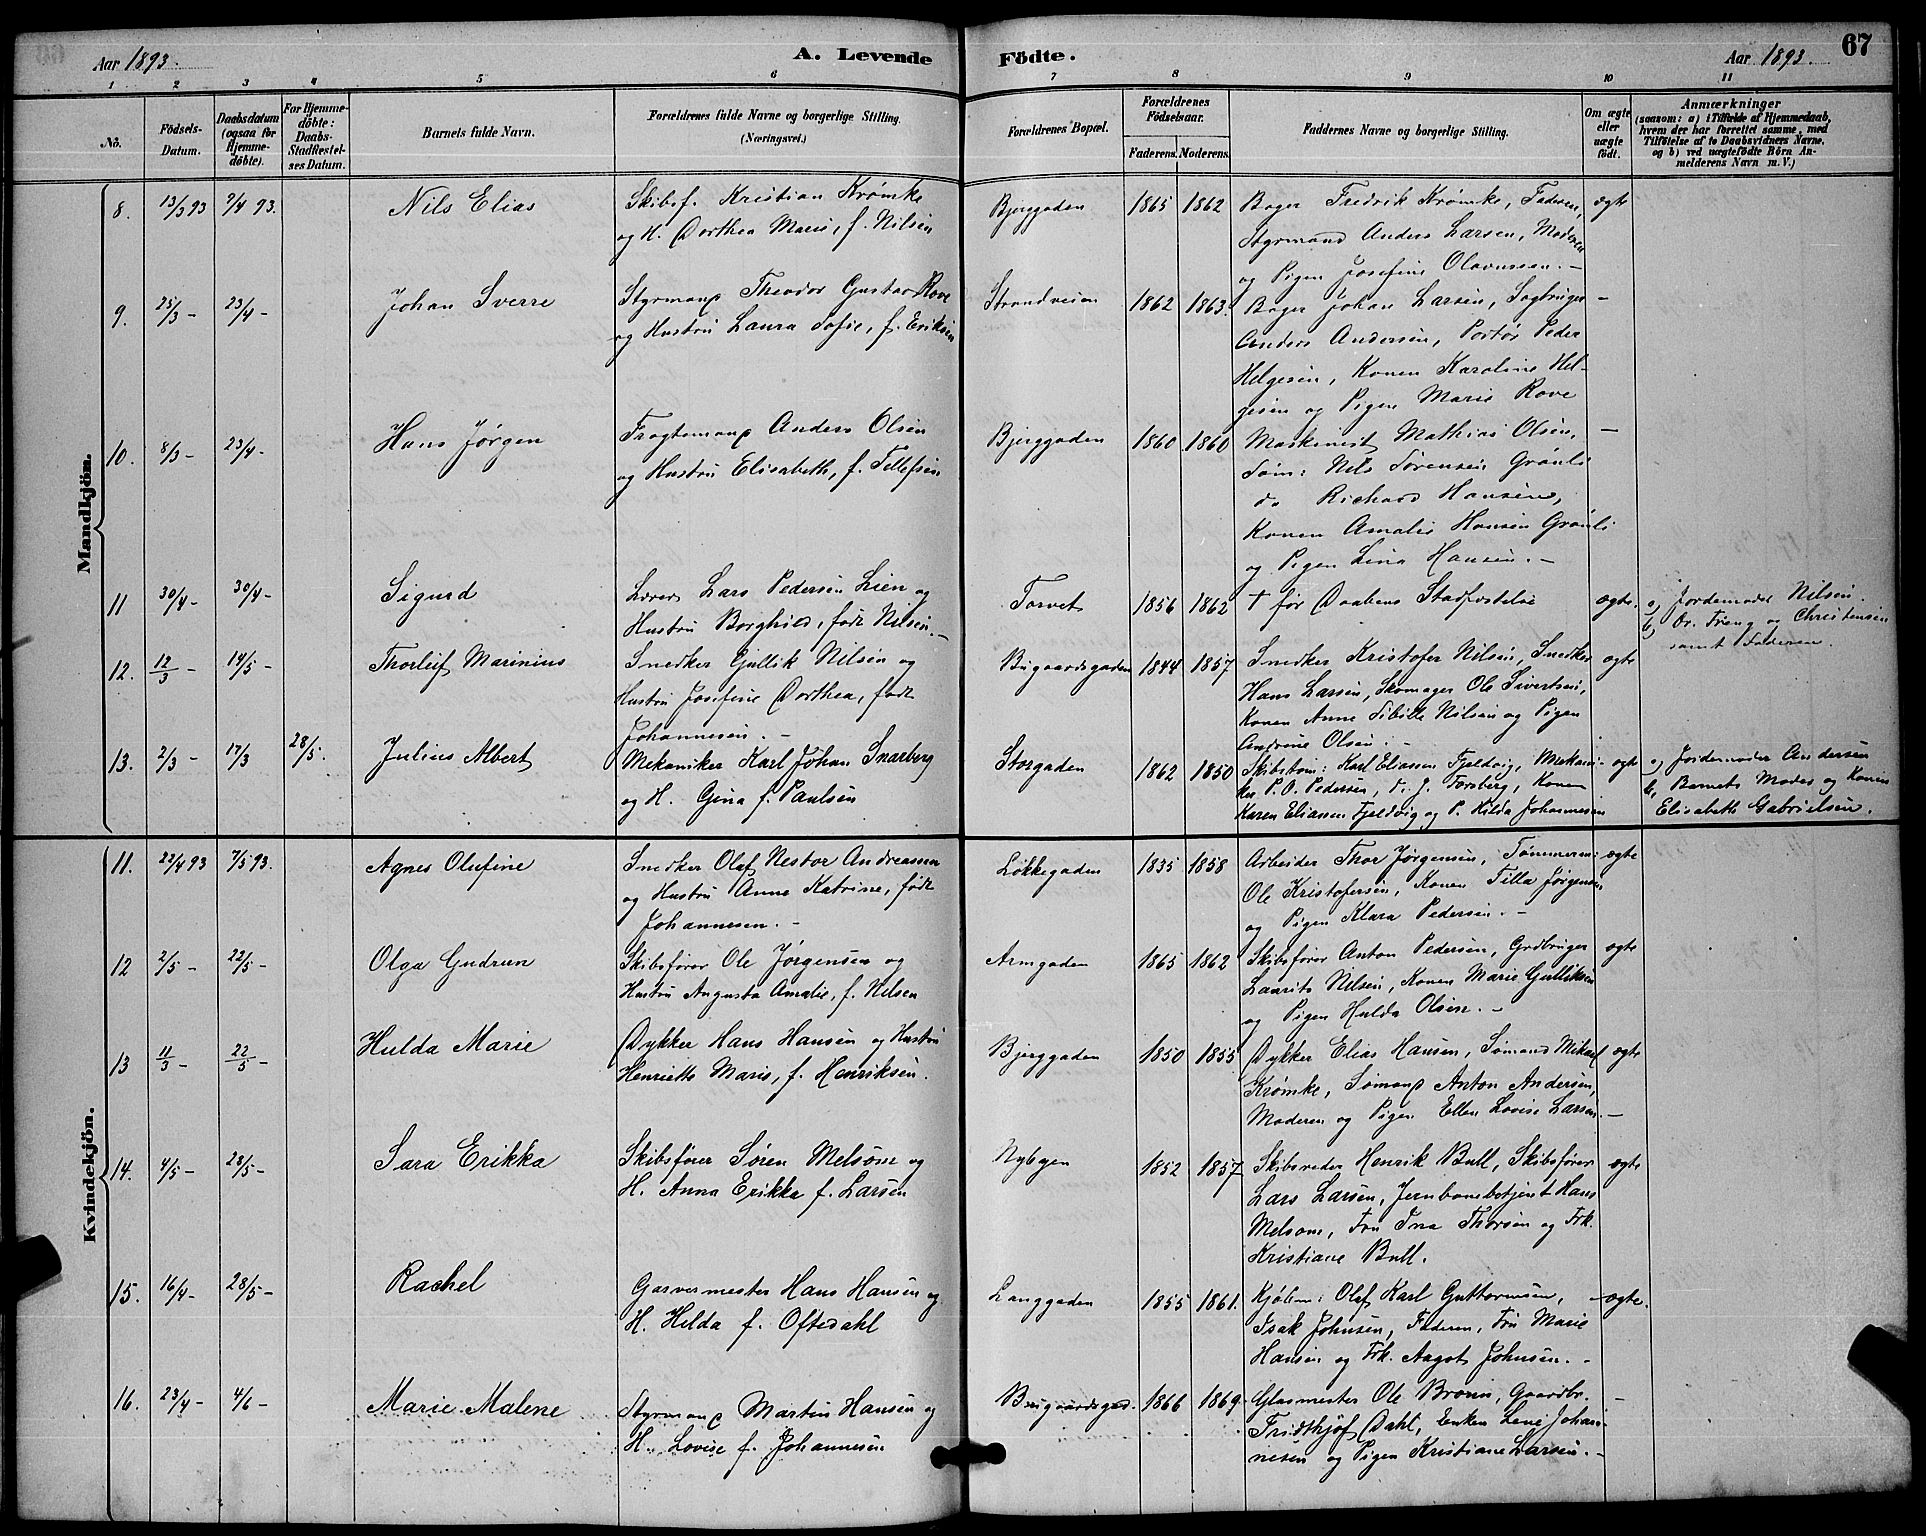 Aar 1893. A. Levende Födte. Aar 1893. 67
1 2 3 4 5 6 7 8 9 10 11
No.
Födsels-Datum.
Daabsdatum (ogsaa for Hjemme-döbte).
For Hjemme-döbte: Daabs-Stadfæstel-ses Datum.
Barnets fulde Navn.
Forældrenes fulde Navne og borgerlige Stilling. (Næringsvei.)
Forældrenes Bopæl.
Forældrenes Födselsaar.
Faderens. Moderens.
Faddernes Navne og borgerlige Stilling.
Om ægte eller uægte födt.
Anmærkninger
(saasom: a) i Tilfælde af Hjemmedaab,
hvem der har forrettet samme, med
Tilföielse af to Daabsvidners Navne,
og b) ved uægtefödte Börn An-
melderens Navn m. V.)
Mandkjön.
8. 13/3 93 9/4 93. Nils Elias Skibsf. Kristian Krømke Bjerggaden 1865 1862 Bager Fredrik Krømke, Faderen, ægte
og H. Dorthea Marie, f. Nilsen Styrmand Anders Larsen, Moderen
og Pigen Josefine Olavussen. –
9. 25/3 – 23/4 – Johan Sverre Styrmand Theodor Gustav Rove Strandveien 1862 1863. Bager Johan Larsen, Sagbruger –
og Hustru Laura Sofie, f. Eriksen Anders Andersen, Portør Peder
Helgesen, Konen Karoline Hel-
gesen og Pigen Marie Rove
10. 8/3 – 23/4 – Hans Jørgen Fragtemand Anders Olsen Bjerggaden 1860 1860 Maskinist Mathias Olsen, –
og Hustru Elisabeth, f. Tellefsen Tøm: Nils Sørensen Grønli
do Richard Hansen,
Konen Amalie Hansen Grønli
og Pigen Lina Hansen. –
11 30/4 – 30/4 – Sigurd Lærer Lars Pedersen Lien og Torvet 1856 1862 † før Daabens Stadfæstelse ægte. a) Jordemoder Nilsen.
Hustru Borghild, født Nilsen. – b) Dr. Freng og Christensen
samt Faderen.
12. 12/3 – 14/5 – Thorleif Marinius Snedker Gullik Nilsen og Bugaardsgaden 1844 1857 Snedker Kristofer Nilsen, Snedker ægte
Hustru Josefine Dorthea, født Hans Larsen, Skomager Ole Sivertsen,
Johannesen. – Konen Anne Sibille Nilsen og Pigen
Andrine Olsen. –
13. 2/3 – 17/3 28/5. Julius Albert Mekaniker Karl Johan Snarberg Storgaden 1862 1850 Skibstøm: Karl Eliassen Fjeldvig, Mekani- ægte a) Jordemoder Andersen
og H. Gina f. Paulsen ker P. O. Pedersen, d. J. Forsberg, Konen b) Barnets Moder og Konen
Karen Eliassen Fjeldvig og P. Hilda Johannesen Elisabeth Gabrielsen.
Kvindekjön.
11. 22/4 93 7/5 93. Agnes Olufine Snedker Olaf Nestor Andreassen Løkkegaden 1835 1858 Arbeider Thor Jørgensen, Tømmerm: ægte
og Hustru Anne Katrine, født Ole Kristofersen, Konen Tilla Jørgensen
Johannesen. – og Pigen Klara Pedersen. –
12 2/5 – 22/5 – Olga Gudrun Skibsfører Ole Jørgensen og Armgaden 1865 1862 Skibsfører Anton Pedersen, Grdbruger ægte
Hustru Augusta Amalie, f. Nilsen Laurits Nilsen, Konen Marie Gulliksen
og Pigen Hulda Olsen. –
13 11/3 – 22/5 – Hulda Marie Dykker Hans Hansen og Hustru Bjerggaden 1850 1855 Dykker Elias Hansen, Sømand Mikael ægte
Henriette Marie, f. Henriksen. Krømke, Sømand Anton Andersen,
Moderen og Pigen Ellen Lovise Larsen. –
14. 4/5 – 28/5 – Sara Erikka Skibsfører Søren Melsom og Nybyen 1852 1857 Skibsreder Henrik Bull, Skibsfører ægte
H. Anna Erikka f. Larsen Lars Larsen, Jernbanebetjent Hans
Melsom, Fru Ina Thorsen og Frk.
Kristiane Bull.
15. 16/4 – 28/5 – Rachel Garvermester Hans Hansen og Langgaden 1855 1861. Kjøbm: Olaf Karl Guttormsen, ægte.
H. Hilda f. Oftedahl Isak Johnsen, Faderen, Fru Marie
Hansen og Frk. Aagot Johnsen. –
16. 23/4 – 4/6 – Marie Malene Styrmand Martin Hansen og Bugaardsgad. 1866 1869. Glasmester Ole Bronn, Gaardbr. –
H. Lovise f. Johannesen Fridthjof Dahl, Enken Lene Johan-
nesen og Pigen Kristiane Larsen. –